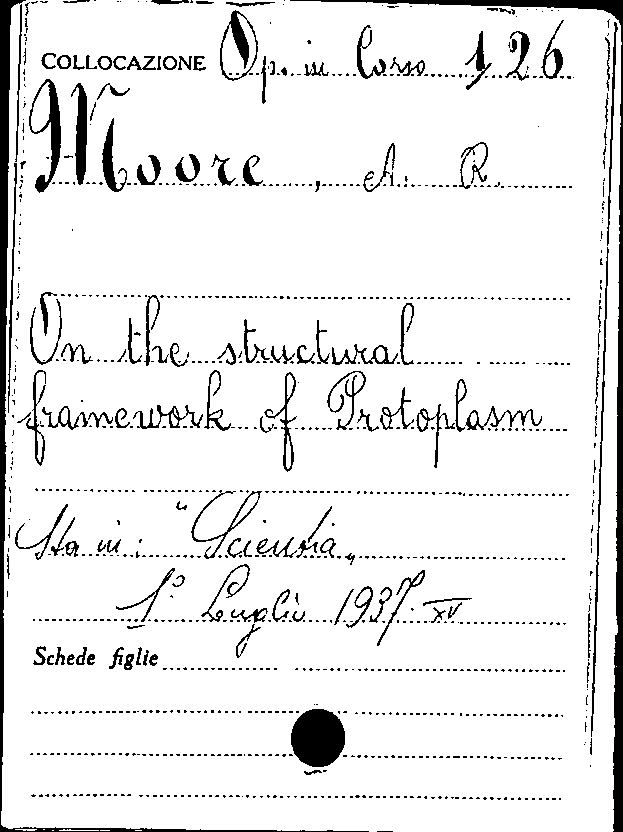 COLLOCAZIONE Op. in Corso 126
Moore, A. R.
On the structural
framework of Protoplasm
Sta in: "Scientia„
1° Luglio 1937. XV
Schede figlie